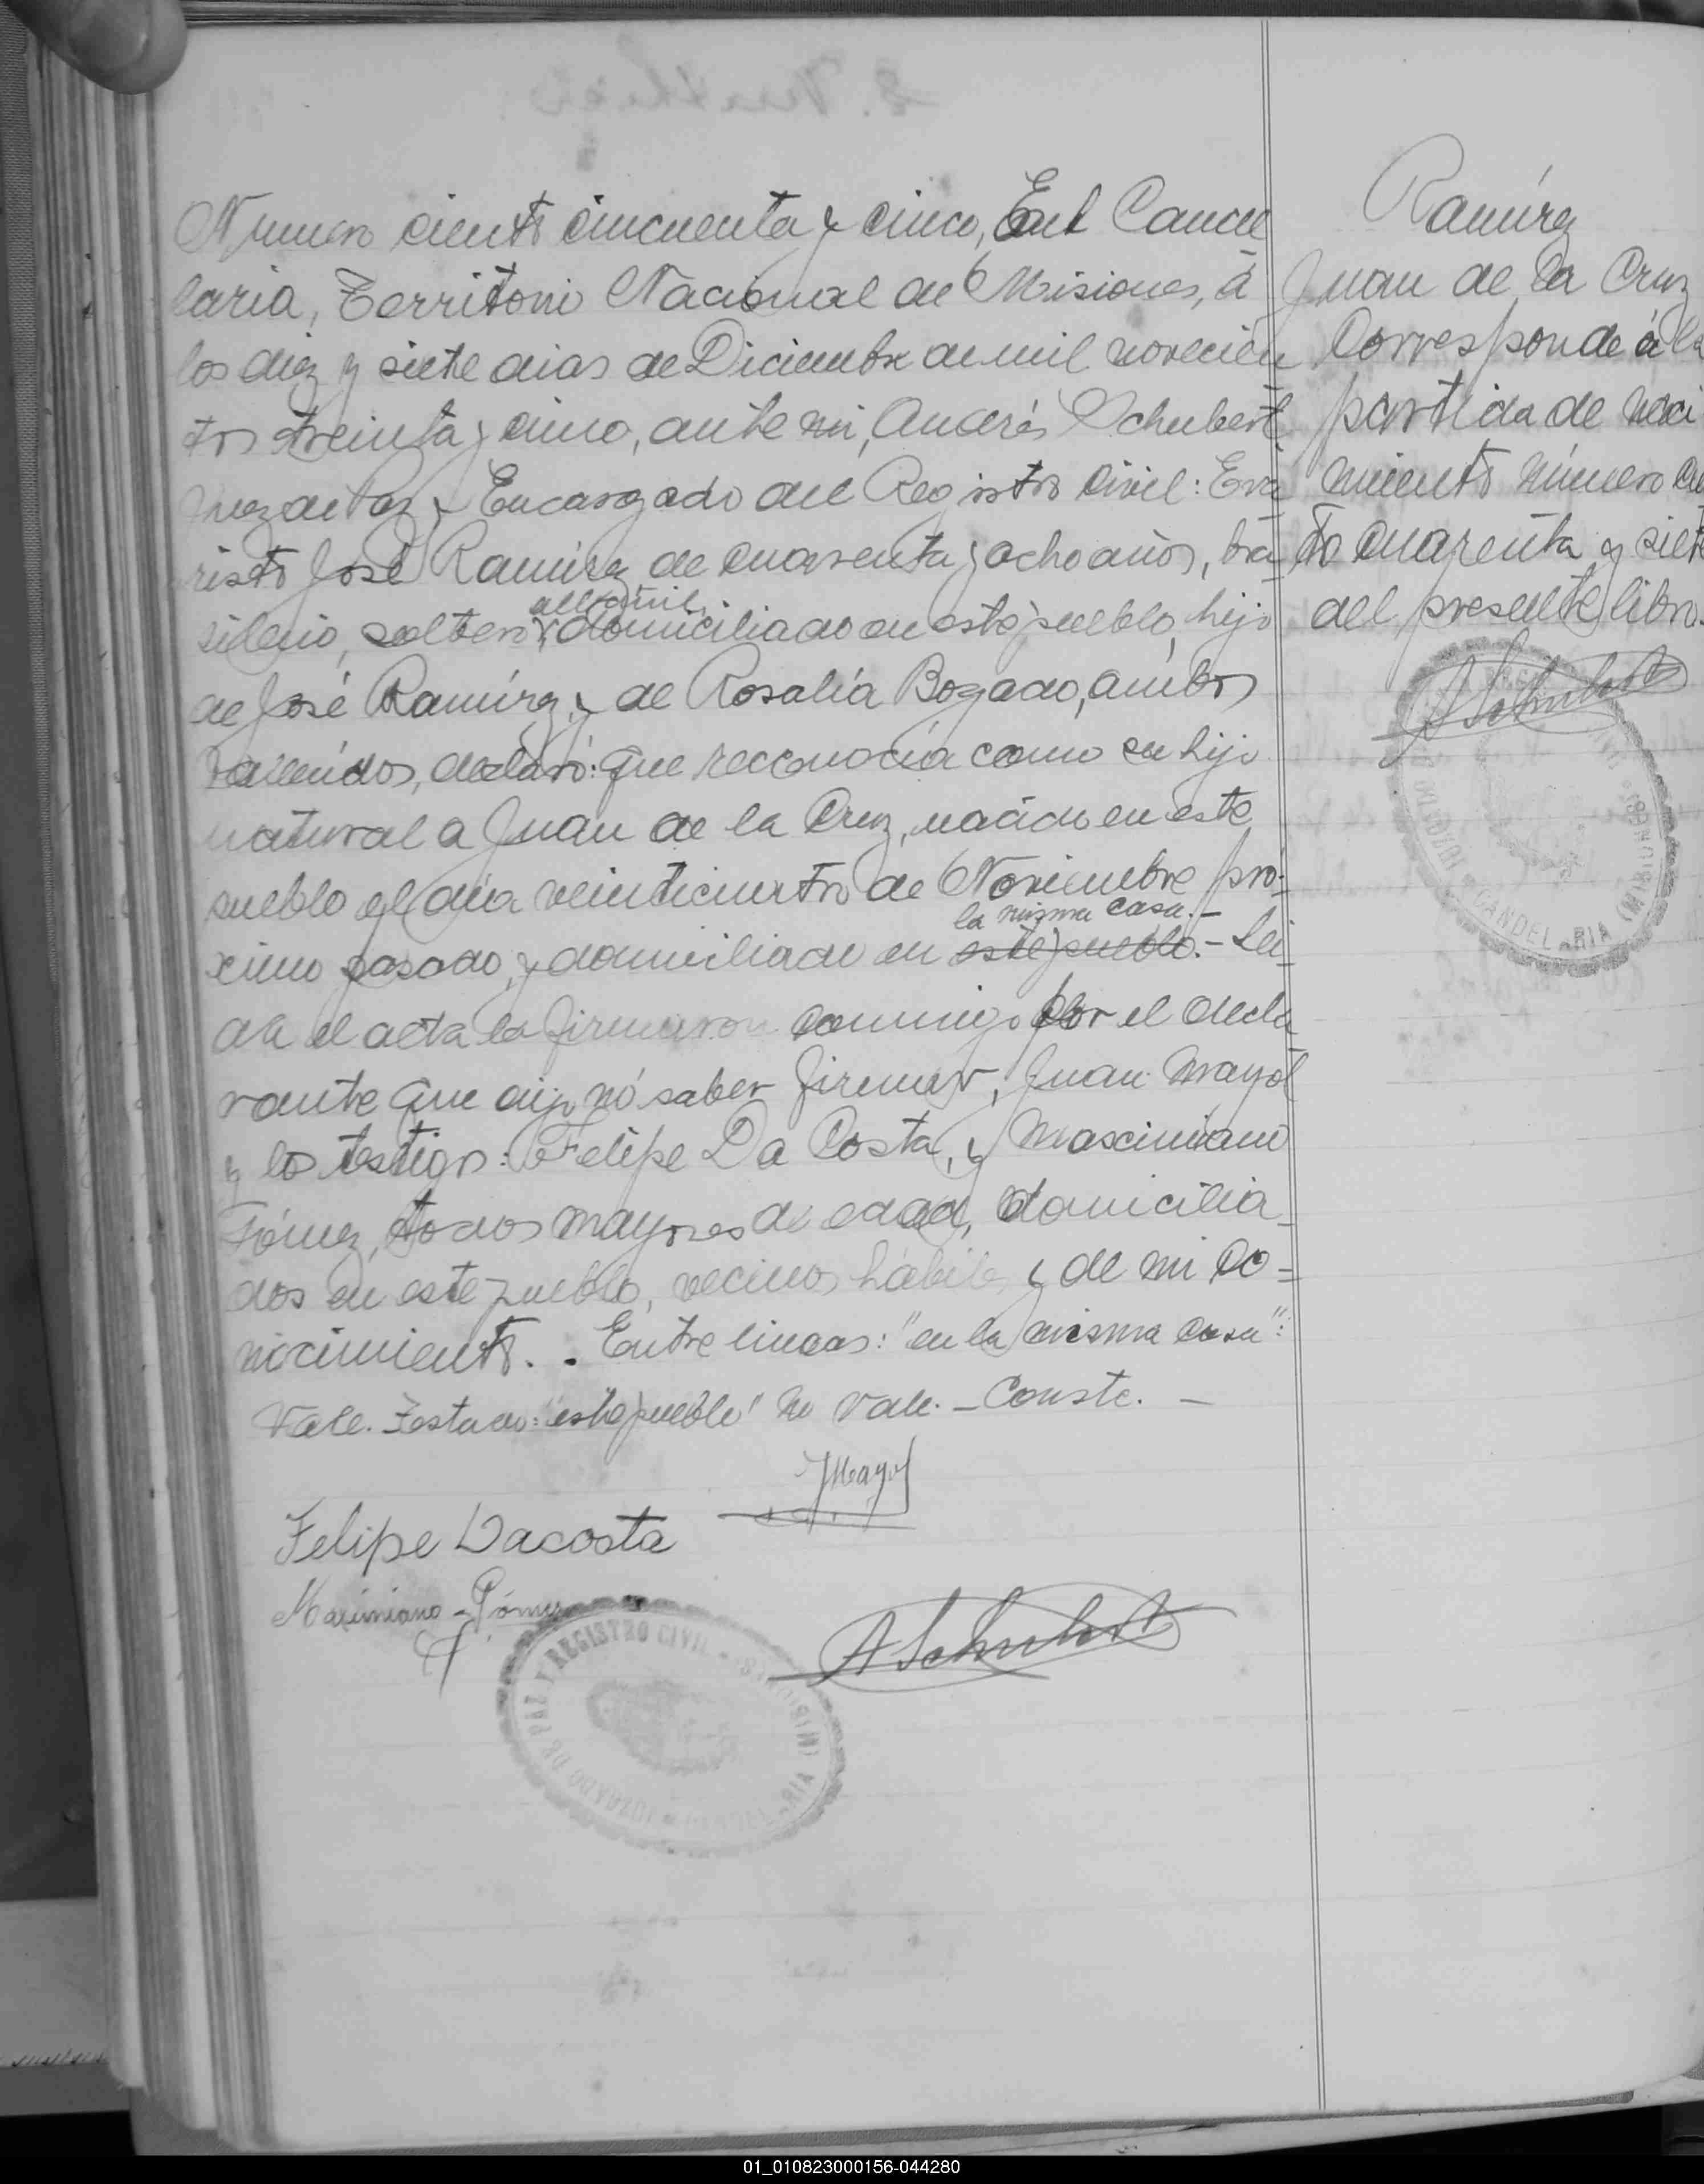 Número ciento cincuenta y cinco, En Cande
laria, Territorio Nacional de Misiones, á
los diez y siete dias de Diciembre de mil novecien
tos treinta y cinco, ante mi, Andrés Schubert
Juez de Paz y Encargado del Registro Civil: Eva
risto José Ramírez de cuarenta y ocho años, bra
silero, soltero, albañil, domiciliado en este pueblo, hijo
de José Ramírez, y de Rosalía Bogado, ambos
fallecidos, declaró: que reconocía como su hijo
natural a Juan de la Cruz, nacido en este
pueblo el día veinticuatro de Noviembre pró-
ximo pasado, y domiciliado en este pueblo. la misma casa.- Lei
da el acta la firmaron conmigo por el decla
rante que dijo nó saber firmar, Juan Mayol
y los testigos: Felipe Da Costa, y Masciniano
Gómez, todos mayores de edad, domicilia-
dos en este pueblo, vecinos hábiles y de mi co=
nocimiento. . Entre lineas: "en la misma casa":
Vale. Testado: "este pueblo" no vale. - Conste. -
JMayol
Felipe Dacosta
Maximiano - Gómez
ASchubert
JUZGADO DE PAZ Y REGISTRO CIVIL
Ramírez
Juan de la Cruz
Corresponde á la
partida de naci
miento número cien
to cuarenta y siete
del presente libro.
ASchubert
CANDELARIA (MISIONES)
01_010823000156-044280